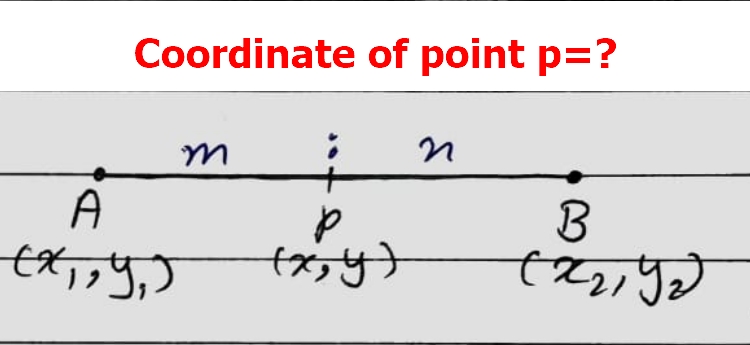 Coordinate of point p=?
m : n
A P B
(x₁, y₁) (x, y) (x₂, y₂)